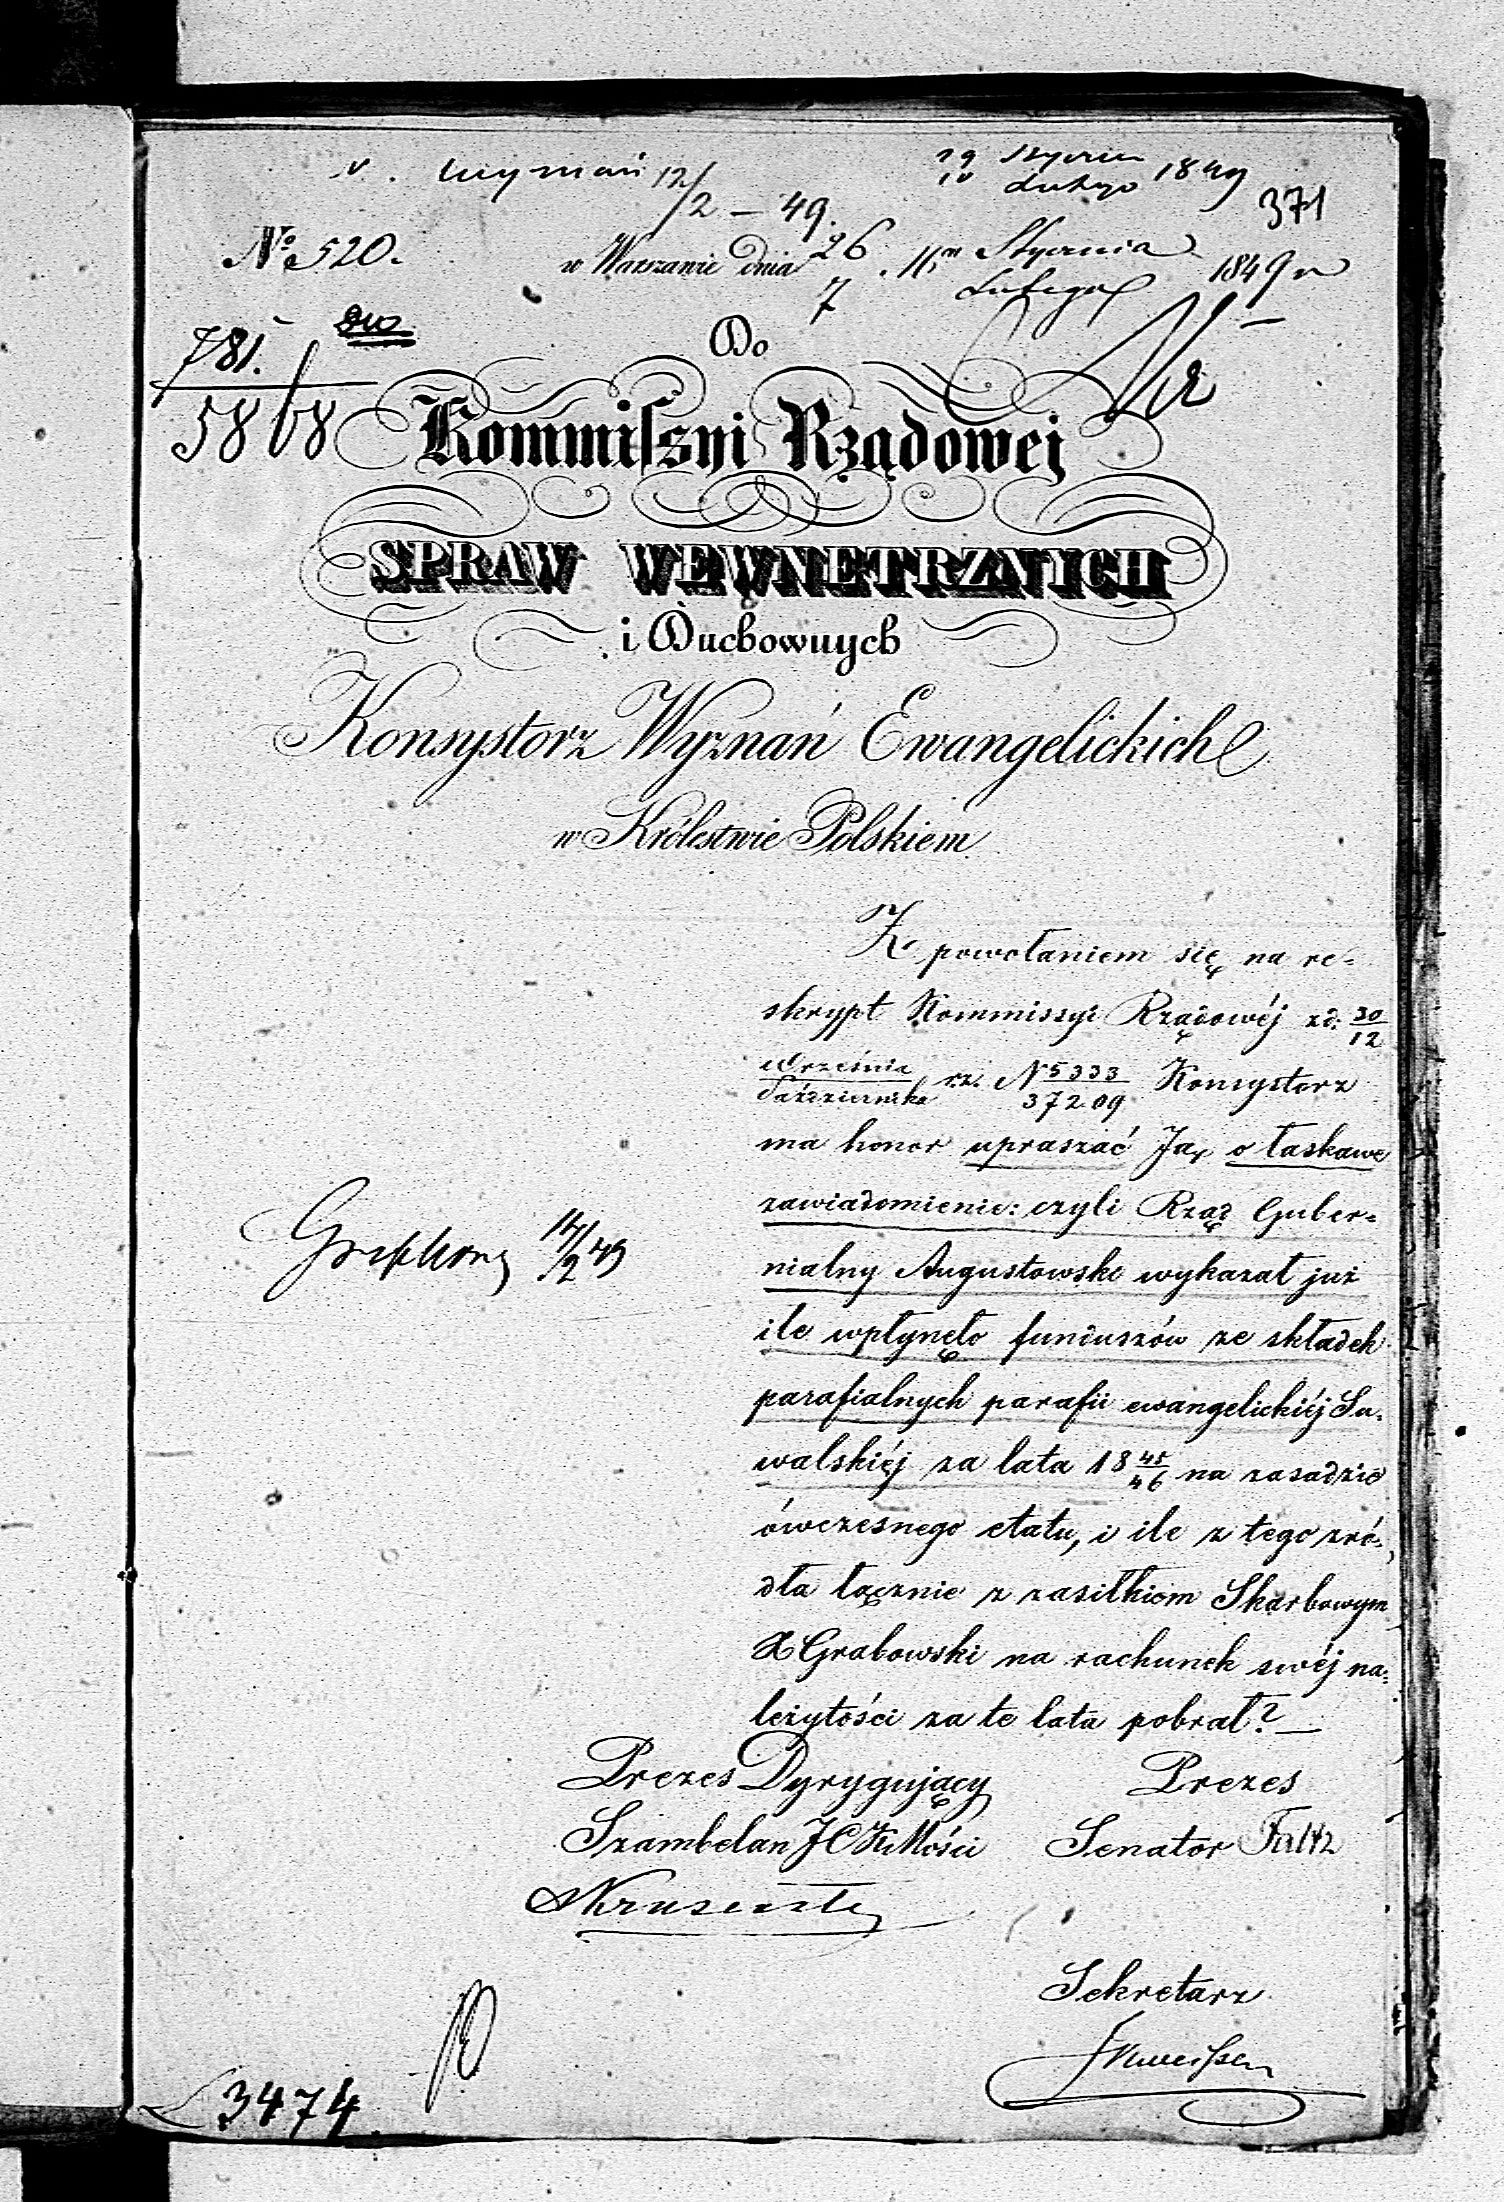 29 Stycznia
10 Lutego 1849
12/2 – 49.
371
No 520.
w Warszawie dnia 26 Stycznia
7 Lutego 1849 r
781.
5868
Do
Kommissyi Rządowej
SPRAW WEWNETRZNYCH
i Duchownych
Konsystorz Wyznań Ewangelickich
w Królestwie Polskiem.
Z powołaniem się na re-
skrypt Kommissyi Rządowéj z d: 30/12
Września/Października r.z. N 5333/37209 Konsystorz
ma honor upraszać Ją, o łaskawe
zawiadomienie: czyli Rząd Guber-
nialny Augustowski wykazał już
ile wpłynęło funduszów ze składek
parafialnych parafii ewangelickiéj Su-
walskiéj za lata 18 45/46 na zasadzie
ówczesnego etatu, i ile z tego źró-
dła łącznie z zasiłkiem Skarbowym
X Grabowski na rachunek swéj na-
leżytości za te lata pobrał? –
14/2 49
Prezes Dyrygujący
Prezes
Szambelan JCK Mości
Senator
Sekretarz
3474